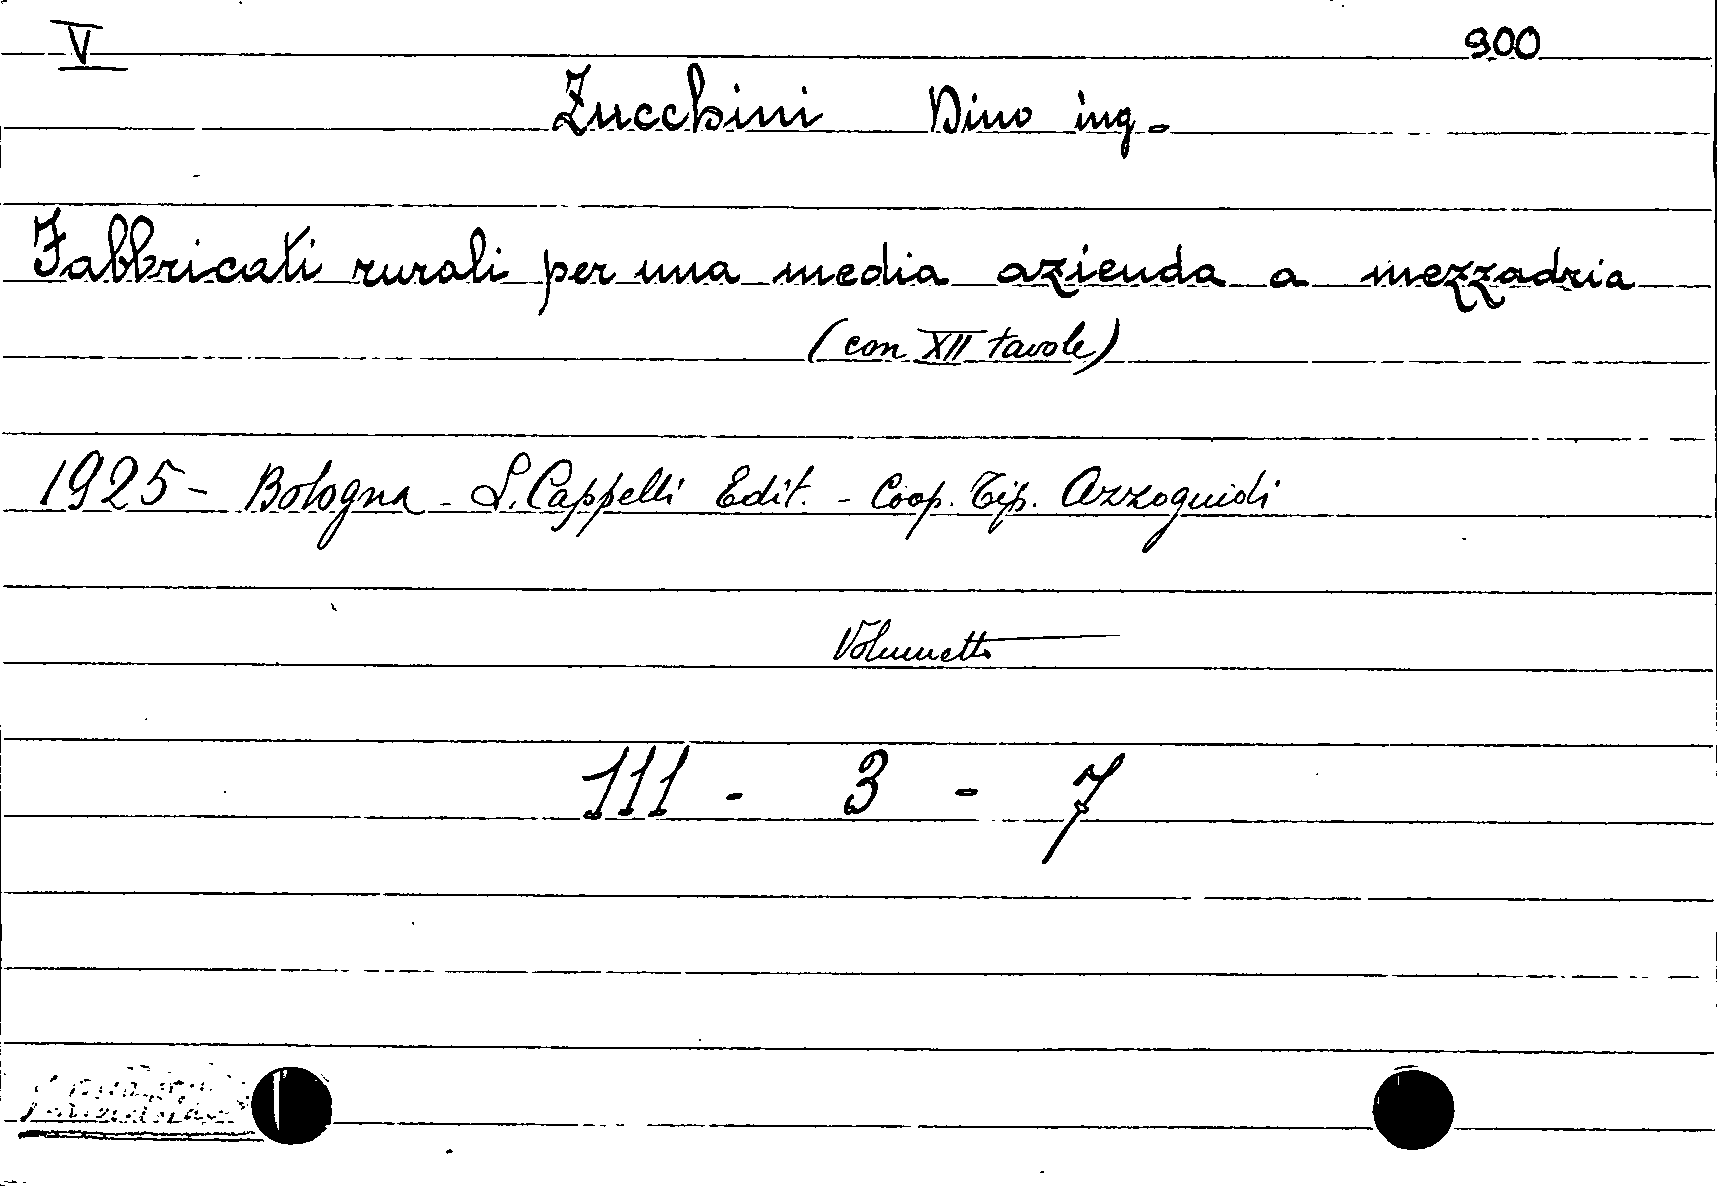 V 900
Zucchini Dino ing.
Fabbricati rurali per una media azienda a mezzadria
(con XII tavole)
1925 - Bologna - L. Cappelli Edit. - Coop. Tip. Azzoguidi
Volumetto
111 - 3 - 7